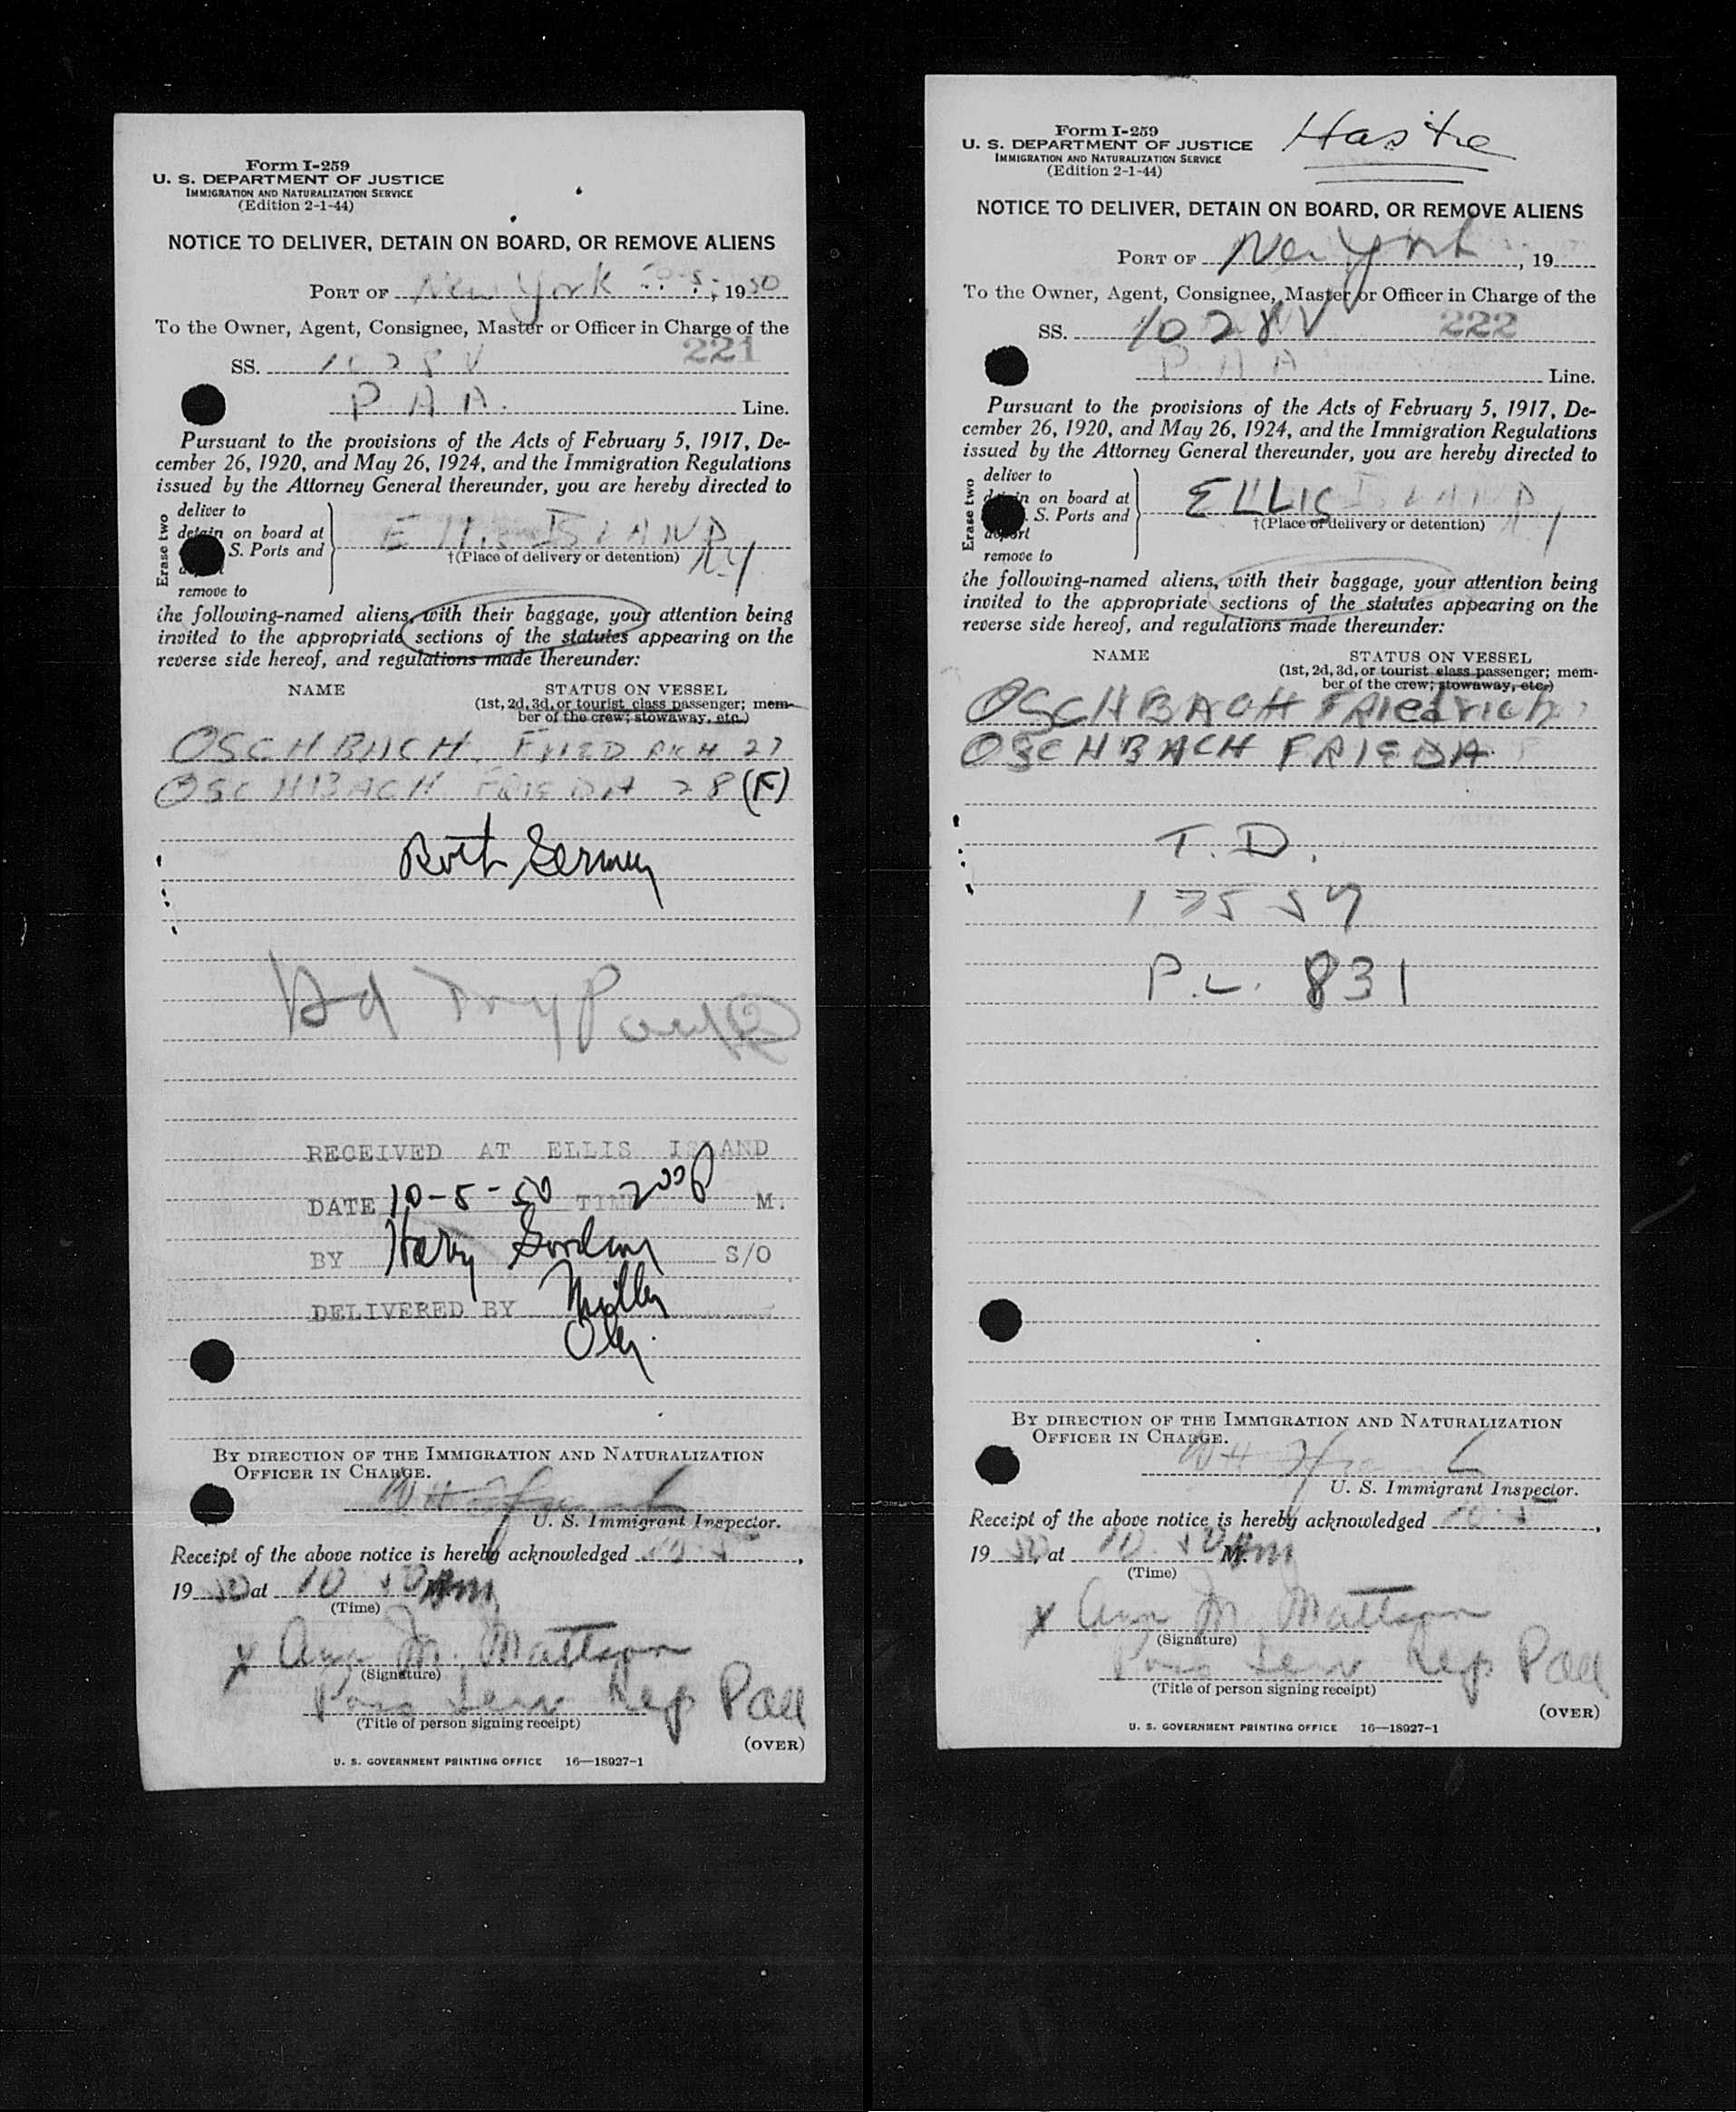 Form I-259
U. S. DEPARTMENT OF JUSTICE
IMMIGRATION AND NATURALIZATION SERVICE
(Edition 2-1-44)
NOTICE TO DELIVER, DETAIN ON BOARD, OR REMOVE ALIENS
PORT OF New York 5, 1950
To the Owner, Agent, Consignee, Master or Officer in Charge of the
SS. 1028 V 221
P A A. Line.
Pursuant to the provisions of the Acts of February 5, 1917, De-
cember 26, 1920, and May 26, 1924, and the Immigration Regulations
issued by the Attorney General thereunder, you are hereby directed to
Erase two
deliver to
detain on board at
S. Ports and
remove to
ELLIS ISLAND NY
†(Place of delivery or detention)
the following-named aliens, with their baggage, your attention being
invited to the appropriate sections of the statutes appearing on the
reverse side hereof, and regulations made thereunder:
NAME STATUS ON VESSEL
(1st, 2d, 3d, or tourist class passenger; mem-
ber of the crew; stowaway, etc.)
OSCHBACH, FRIEDRICH 27
OSCHBACH FRIEDA 28 (F)
Both Germany
RECEIVED AT ELLIS ISLAND
DATE 10-5-50 TIME 200 P M.
BY Harry S/O
DELIVERED BY
BY DIRECTION OF THE IMMIGRATION AND NATURALIZATION
OFFICER IN CHARGE.
U. S. Immigrant Inspector.
Receipt of the above notice is hereby acknowledged 10-5,
1950 at 10 50 AM
(Time)
x Ann M. Mattson
(Signature)
Pass Serv Rep PAA
(Title of person signing receipt)
(OVER)
U. S. GOVERNMENT PRINTING OFFICE 16—18927-1
Form I-259
U. S. DEPARTMENT OF JUSTICE
IMMIGRATION AND NATURALIZATION SERVICE
(Edition 2-1-44)
NOTICE TO DELIVER, DETAIN ON BOARD, OR REMOVE ALIENS
PORT OF New York, 19
To the Owner, Agent, Consignee, Master or Officer in Charge of the
SS. 1028 V 222
P A A Line.
Pursuant to the provisions of the Acts of February 5, 1917, De-
cember 26, 1920, and May 26, 1924, and the Immigration Regulations
issued by the Attorney General thereunder, you are hereby directed to
Erase two
deliver to
on board at
S. Ports and
remove to
ELLIS ISLAND NY
†(Place of delivery or detention)
the following-named aliens, with their baggage, your attention being
invited to the appropriate sections of the statutes appearing on the
reverse side hereof, and regulations made thereunder:
NAME STATUS ON VESSEL
(1st, 2d, 3d, or tourist class passenger; mem-
ber of the crew; stowaway, etc.)
OSCHBACH Friedrich
OSCHBACH FRIEDA
T. D.
17557
P.L. 831
BY DIRECTION OF THE IMMIGRATION AND NATURALIZATION
OFFICER IN CHARGE.
U. S. Immigrant Inspector.
Receipt of the above notice is hereby acknowledged 10-5,
1950, at 10 50 AM
(Time)
x Ann M. Mattson
(Signature)
Pass Serv Rep PAA
(Title of person signing receipt)
(OVER)
U. S. GOVERNMENT PRINTING OFFICE 16—18927-1